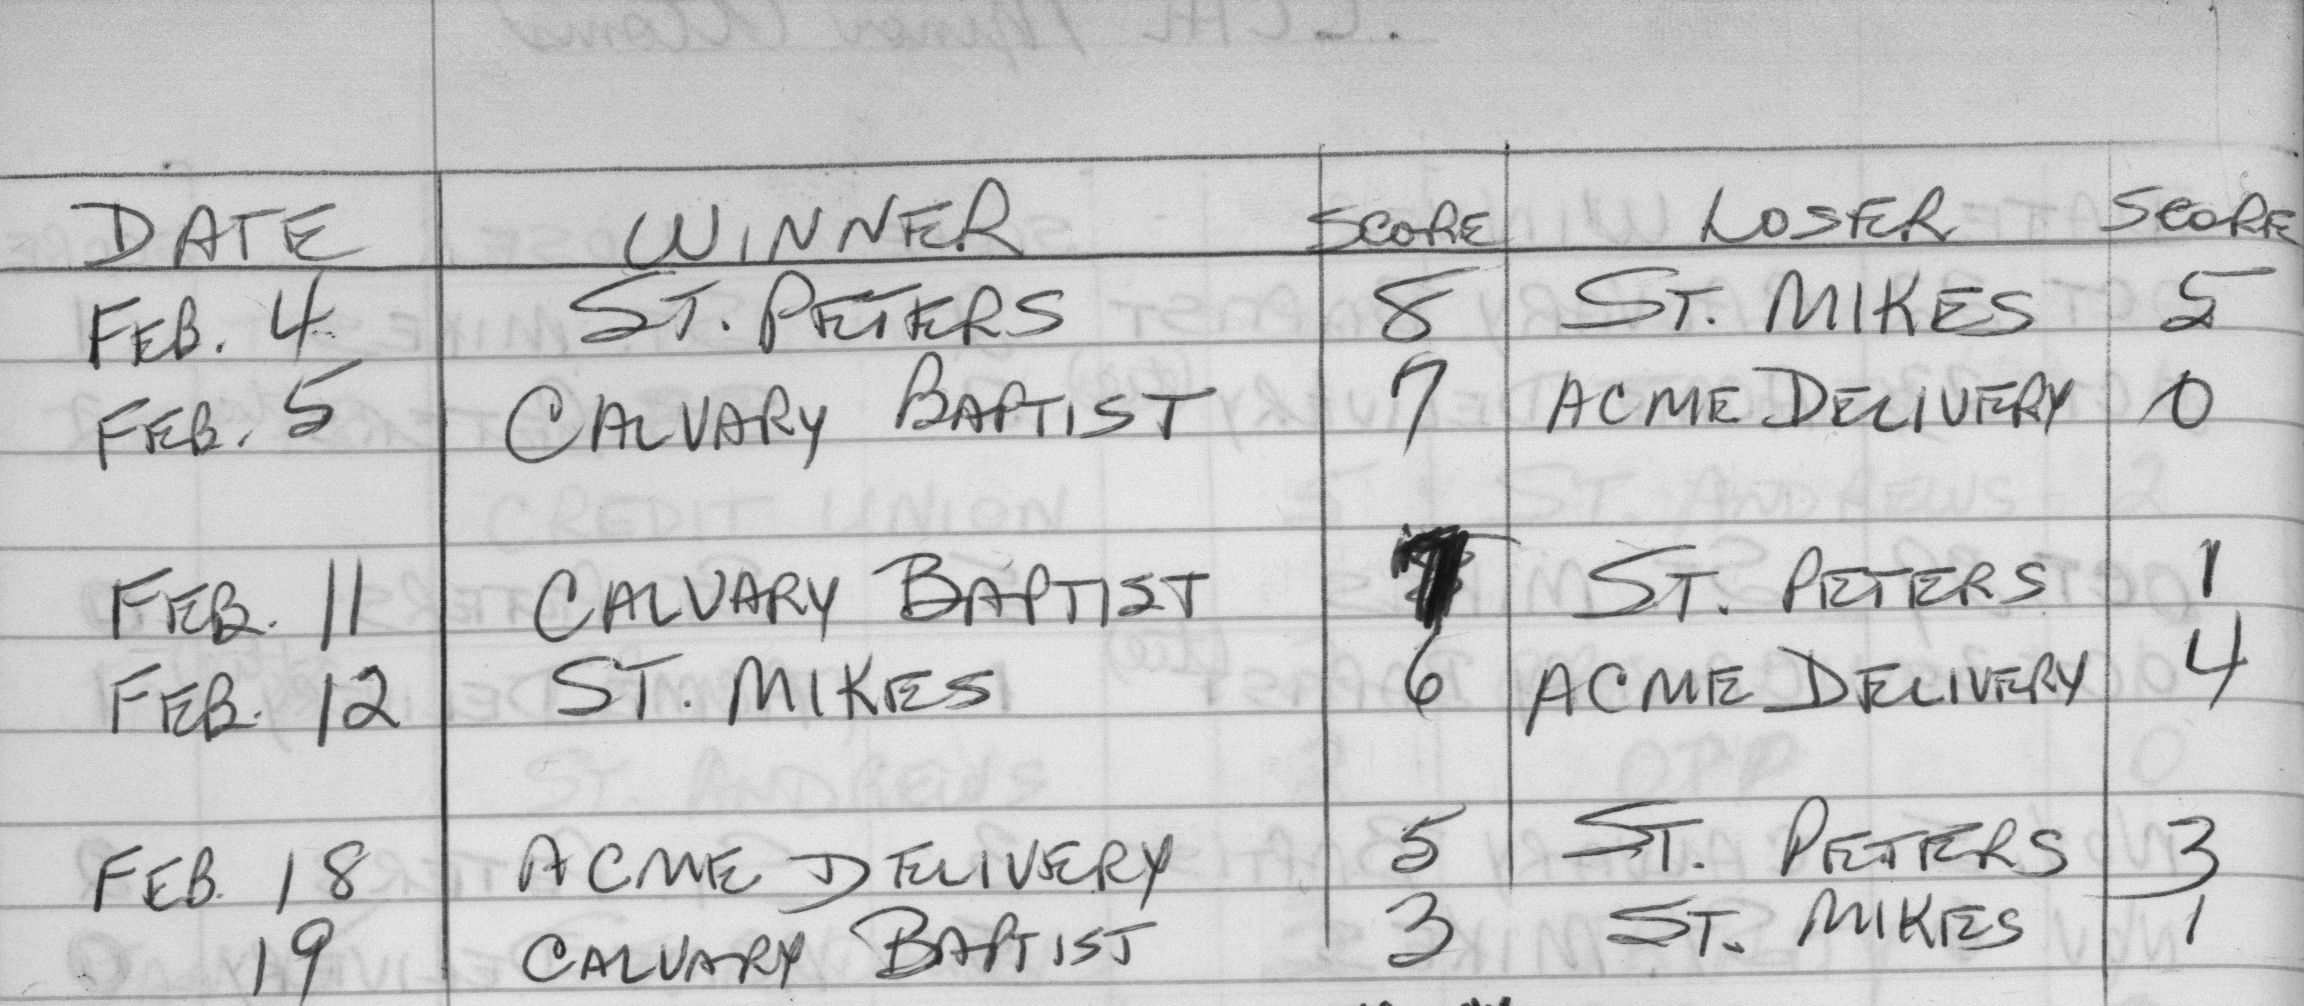 DATE WINNER SCORE LOSER SCORE
FEB. 4 ST. PETERS 8 ST. MIKES 5
FEB. 5 CALVARY BAPTIST 7 ACME DELIVERY 0
FEB. 11 CALVARY BAPTIST 7 ST. PETERS 1
FEB. 12 ST. MIKES 6 ACME DELIVERY 4
FEB. 18 ACME DELIVERY 5 ST. PETERS 3
19 CALVARY BAPTIST 3 ST. MIKES 1